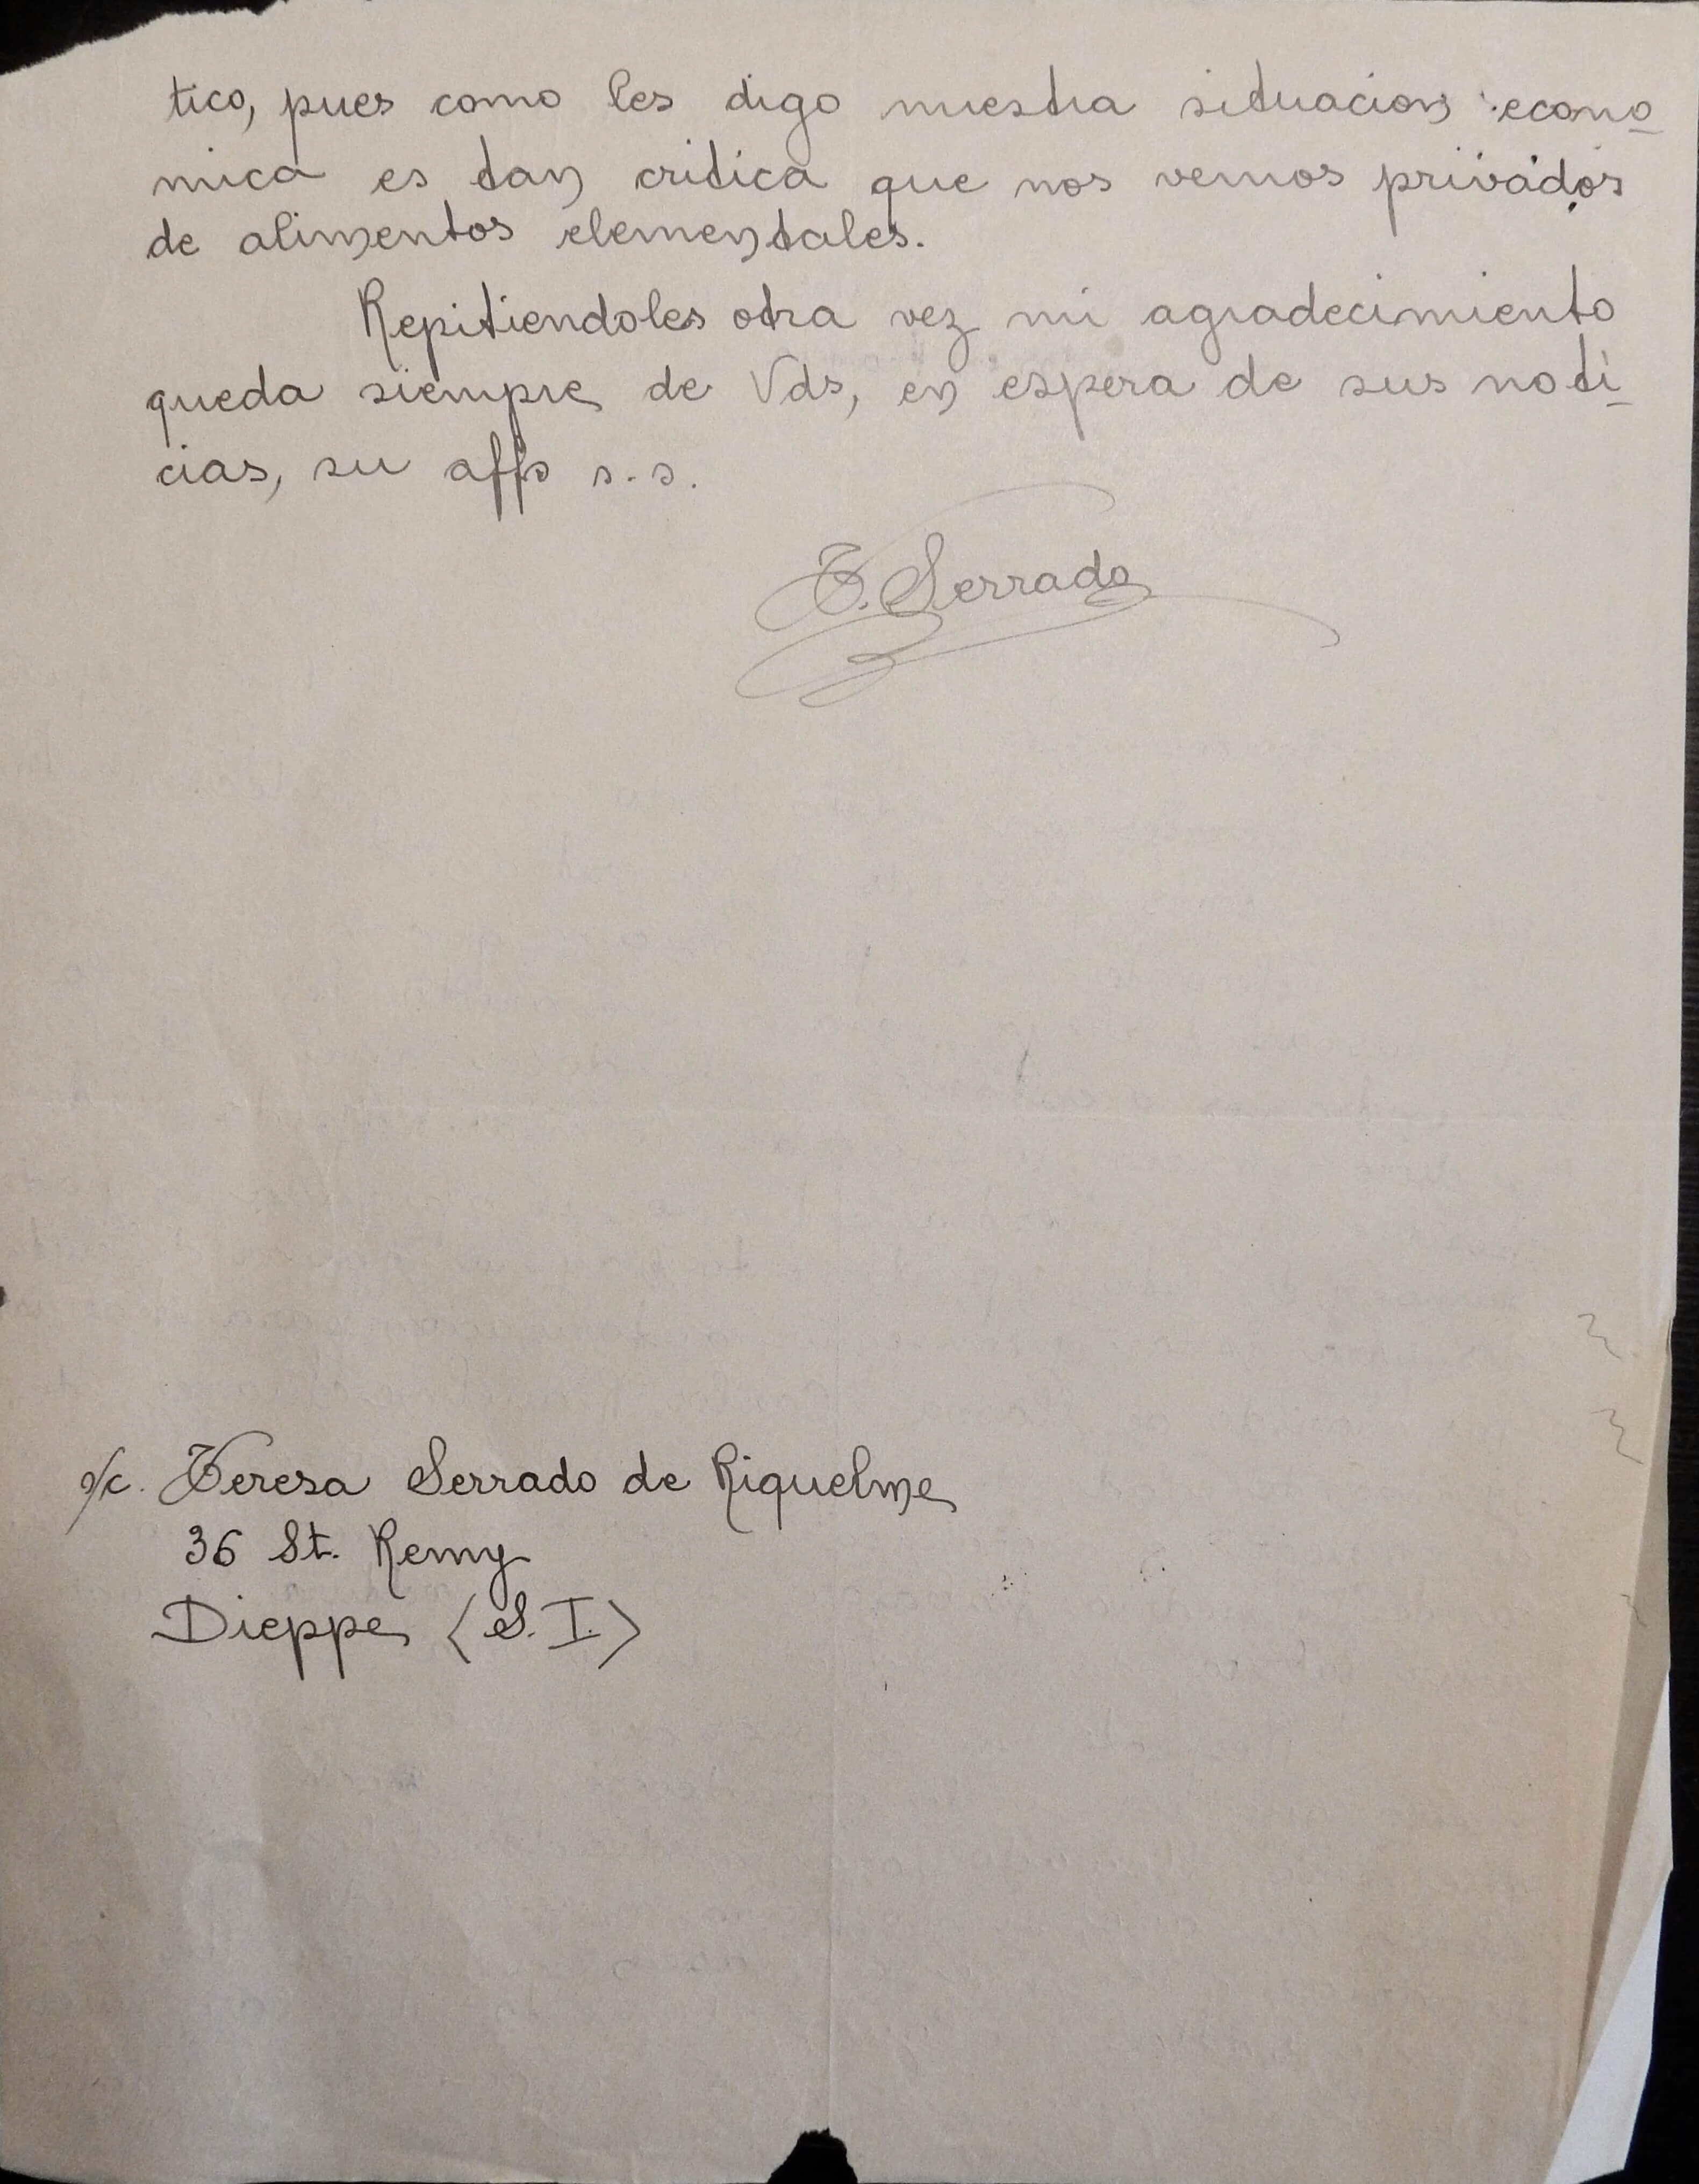 tico, pues como les digo nuestra situacion econo-
mica es tan critica que nos vemos privados
de alimentos elementales.
Repitiendoles otra vez mi agradecimiento
queda siempre de Vds, en espera de sus noti-
cias, su affo s.s.
T. Serrado
s/c. Teresa Serrado de Riquelme
36 St. Remy
Dieppe (S.I.)